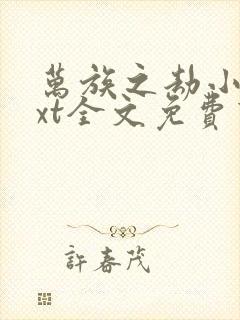 萬族之劫小
xt全文免費
許春茂